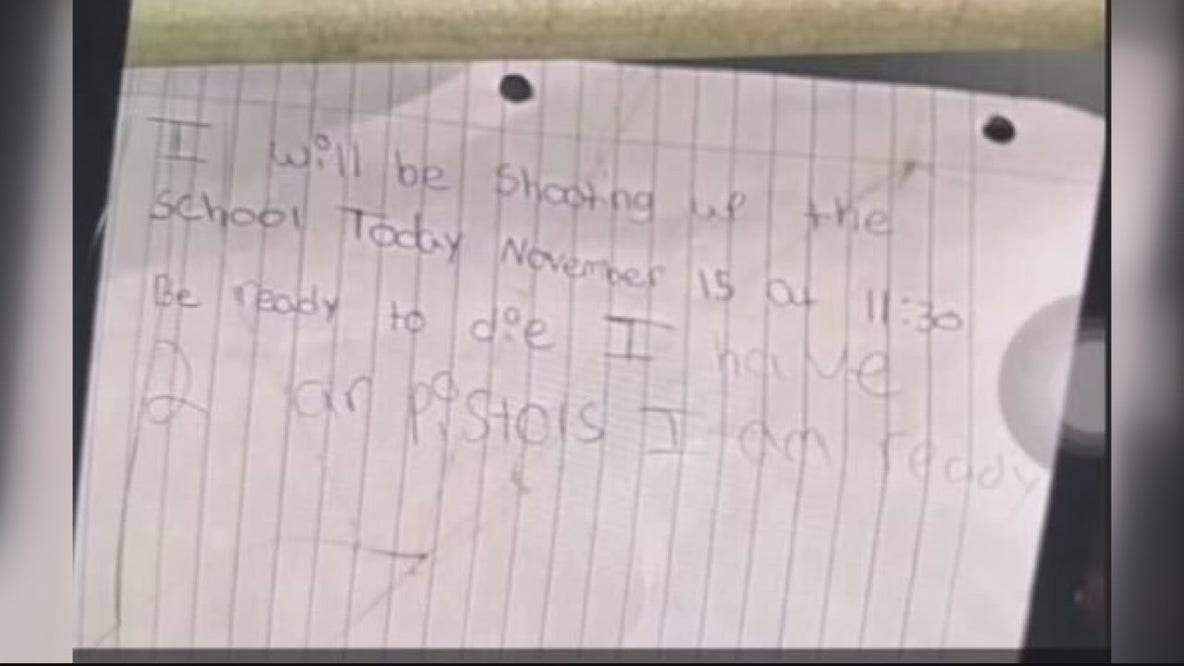 I will be Shooting up the
school Today November 15 at 11:30
Be ready to die I have
2 ar pistols I am ready